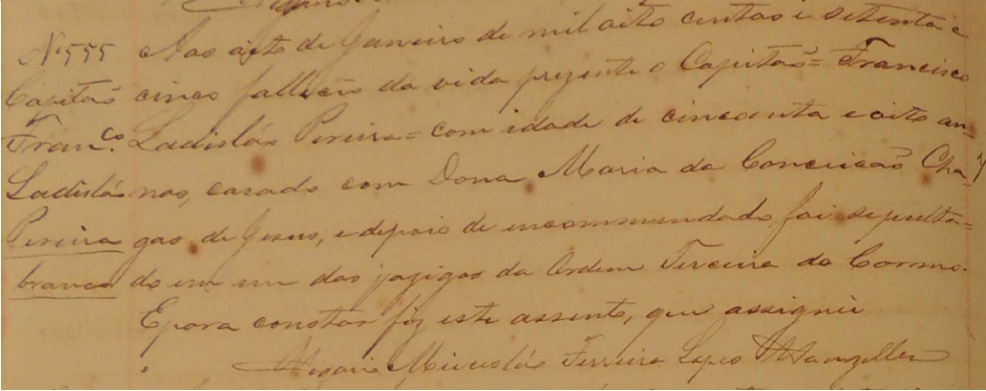 Nº 555
Capitão
Franco.
Ladisláo
Pereira
branco
Aos oito de Janeiro de mil oito centos e setenta e
cinco falleceo da vida prezente o Capitão= Francisco
Ladisláo Pereira= com idade de cincoenta e oito an-
nos, casado com Dona Maria da Conceicão Cha-
gas de Jesus, e depois de encommendado foi sepulta=
do em um dos jazigos da Ordem Terceira do Carmo.
E para constar fiz este assento, que assignei
Vigario Nicoláo Ferreira Lopes